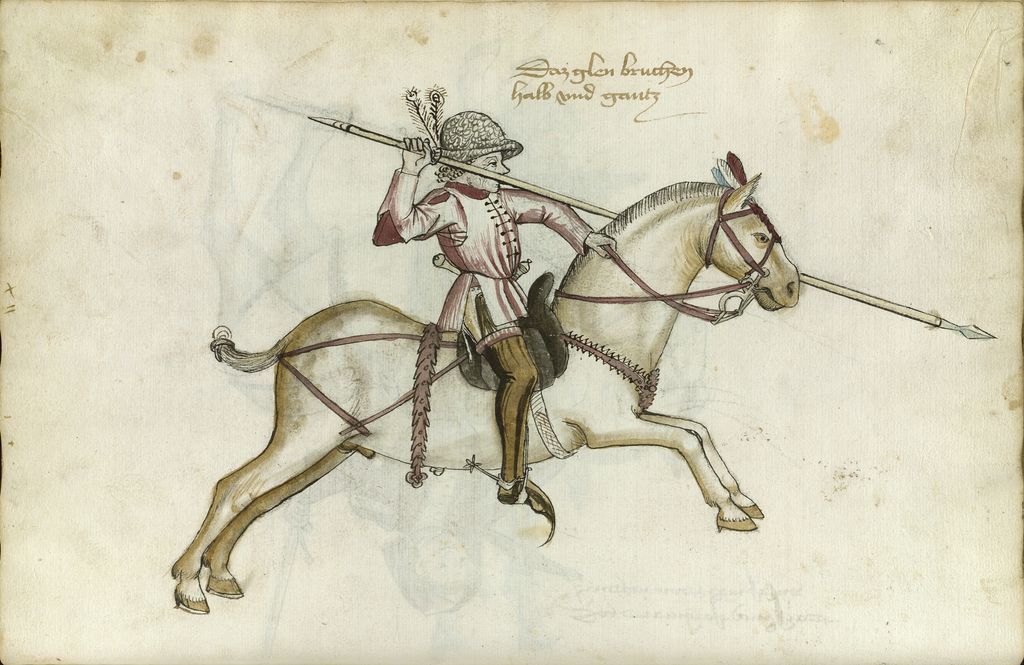 Daz glen bruchen
halb vnd gantz